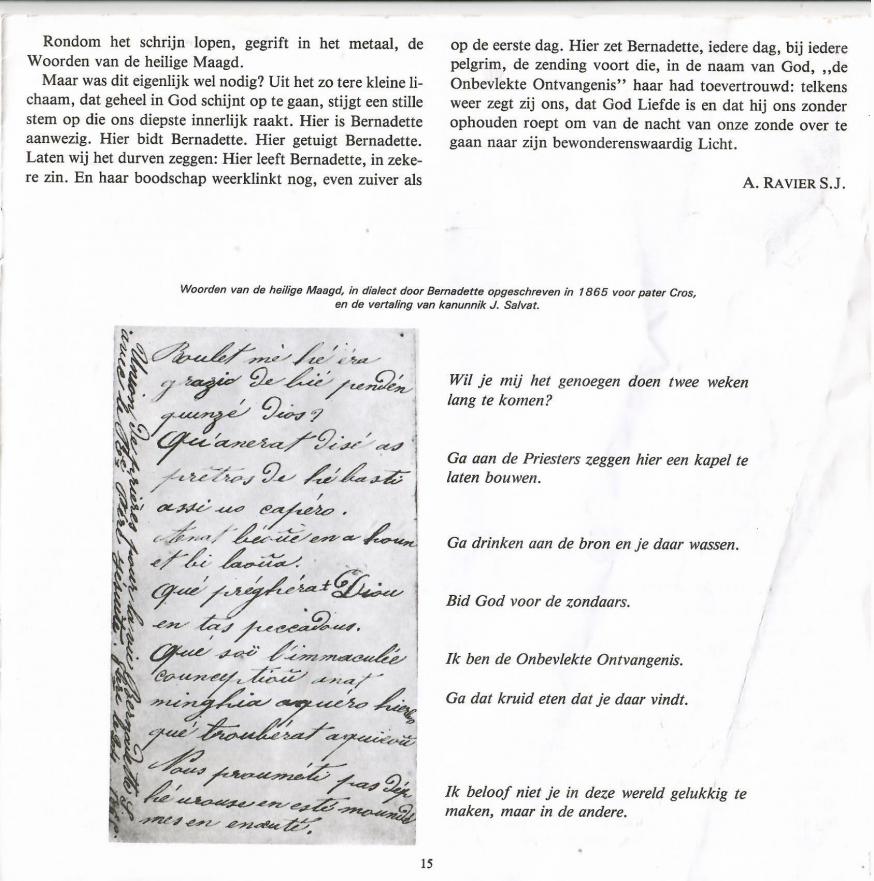 Rondom het schrijn lopen, gegrift in het metaal, de
Woorden van de heilige Maagd.
Maar was dit eigenlijk wel nodig? Uit het zo tere kleine li-
chaam, dat geheel in God schijnt op te gaan, stijgt een stille
stem op die ons diepste innerlijk raakt. Hier is Bernadette
aanwezig. Hier bidt Bernadette. Hier getuigt Bernadette.
Laten wij het durven zeggen: Hier leeft Bernadette, in zeke-
re zin. En haar boodschap weerklinkt nog, even zuiver als
op de eerste dag. Hier zet Bernadette, iedere dag, bij iedere
pelgrim, de zending voort die, in de naam van God, ,,de
Onbevlekte Ontvangenis" haar had toevertrouwd: telkens
weer zegt zij ons, dat God Liefde is en dat hij ons zonder
ophouden roept om van de nacht van onze zonde over te
gaan naar zijn bewonderenswaardig Licht.
A. RAVIER S.J.
Woorden van de heilige Maagd, in dialect door Bernadette opgeschreven in 1865 voor pater Cros,
en de vertaling van kanunnik J. Salvat.
Boulet mé hé éra
grazio de bié pendén
quinzé dios?
Qu'anerat disé as
prétros de hé basti
assi uo capéro.
Anat béoué en a houn
et bi laoua.
Qué préghérat Diou
en tas peccadous.
Qué soï l'immaculée
counceptioũ anat
minghia aquéro
qué troubérat aquieoũ
Nous prouméti pas
hé urouse en esté mounde
mes en enaute.
Union de prières
Wil je mij het genoegen doen twee weken
lang te komen?
Ga aan de Priesters zeggen hier een kapel te
laten bouwen.
Ga drinken aan de bron en je daar wassen.
Bid God voor de zondaars.
Ik ben de Onbevlekte Ontvangenis.
Ga dat kruid eten dat je daar vindt.
Ik beloof niet je in deze wereld gelukkig te
maken, maar in de andere.
15